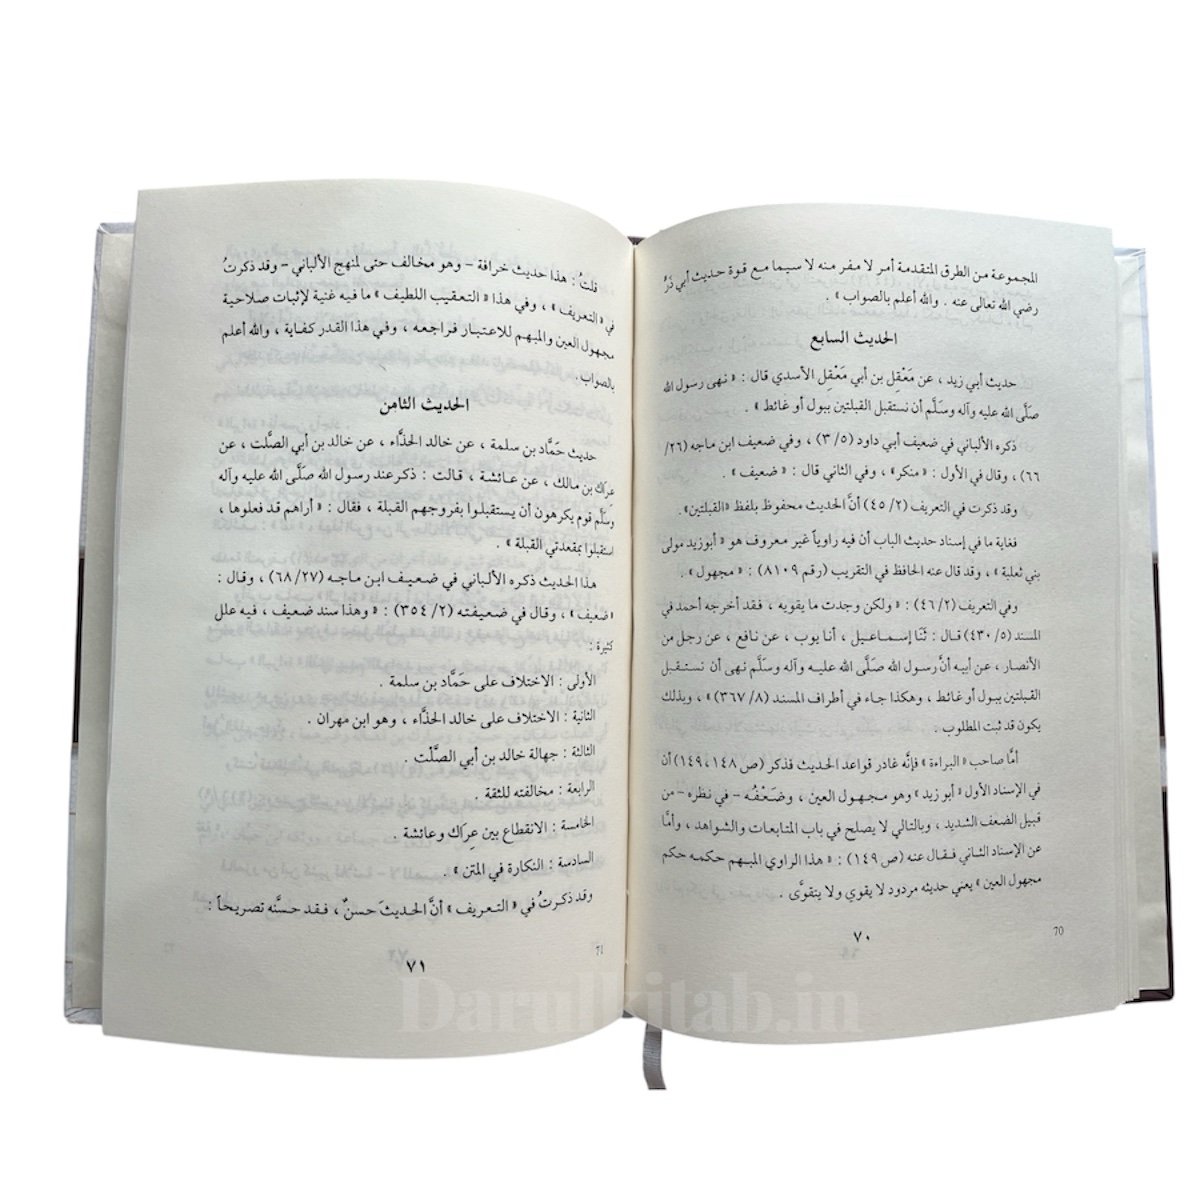 المجموعة من الطرق المتقدمة أمر لا مفر منه لا سيما مع قوة حديث أبي ذرٍّ
رضي الله تعالى عنه . والله أعلم بالصواب » .
الحديث السابع
حديث أبي زيد ، عن مَعْقِل بن أبي مَعْقِل الأسدي قال : « نهى رسول الله
صلَّى الله عليه وآله وسلَّم أن نستقبل القبلتين ببول أو غائط » .
ذكره الألباني في ضعيف أبي داود (٣/٥) ، وفي ضعيف ابن ماجه (٢٦/
٦٦) ، وقال في الأول : « منكر » ، وفي الثاني قال : « ضعيف » .
وقد ذكرت في التعريف (٤٥/٢) أنَّ الحديث محفوظ بلفظ «القبلتين» .
فغاية ما في إسناد حديث الباب أن فيه راوياً غير معروف هو « أبوزيد مولى
بني ثعلبة » ، وقد قال عنه الحافظ في التقريب (رقم ٨١٠٩) : « مجهول » .
وفي التعريف (٤٦/٢) : « ولكن وجدت ما يقويه ، فقد أخرجه أحمد في
المسند (٤٣٠/٥) قال : ثَنَا إسماعيل ، أنا يوب ، عن نافع ، عن رجل من
الأنصار ، عن أبيه أنَّ رسول الله صلَّى الله عليه وآله وسلَّم نهى أن تستقبل
القبلتين ببول أو غائط ، وهكذا جاء في أطراف المسند (٣٦٧/٨) » ، وبذلك
يكون قد ثبت المطلوب .
أمَّا صاحب « البراءة » فإنَّه غادر قواعد الحديث فذكر (ص ١٤٨، ١٤٩) أن
في الإسناد الأول « أبو زيد » وهو مجهول العين ، وضَعْفُه – في نظره – من
قبيل الضعف الشديد ، وبالتالي لا يصلح في باب المتابعات والشواهد ، وأمَّا
عن الإسناد الثاني فقال عنه (ص ١٤٩) : « هذا الراوي المبهم حكمه حكم
مجهول العين » يعني حديثه مردود لا يقوي ولا يتقوَّى .
70
٧٠
قلتُ : هذا حديث خرافة – وهو مخالف حتى لمنهج الألباني – وقد ذكرتُ
في « التعريف » ، وفي هذا « التعقيب اللطيف » ما فيه غنية لإثبات صلاحية
مجهول العين والمبهم للاعتبار فراجعه ، وفي هذا القدر كفاية ، والله أعلم
بالصواب .
الحديث الثامن
حديث حَمَّاد بن سلمة ، عن خالد الحذَّاء ، عن خالد بن أبي الصَّلت ، عن
عِرَاك بن مالك ، عن عائشة ، قالت : ذكر عند رسول الله صلَّى الله عليه وآله
وسلَّم قوم يكرهون أن يستقبلوا بفروجهم القبلة ، فقال : « أراهم قد فعلوها ،
استقبلوا بمقعدتي القبلة » .
هذا الحديث ذكره الألباني في ضعيف ابن ماجه (٦٨/٢٧) ، وقال :
«ضعيف» ، وقال في ضعيفته (٣٥٤/٢) : « وهذا سند ضعيف ، فيه علل
كثيرة :
الأولى : الاختلاف على حَمَّاد بن سلمة .
الثانية : الاختلاف على خالد الحذَّاء ، وهو ابن مهران .
الثالثة : جهالة خالد بن أبي الصَّلْت .
الرابعة : مخالفته للثقة .
الخامسة : الانقطاع بين عِرَاك وعائشة .
السادسة : النكارة في المتن » .
وقد ذكرتُ في « التعريف » أنَّ الحديثَ حسنٌ ، فقد حسنَّه تصريحاً :
71
٧١
Darulkitab.in